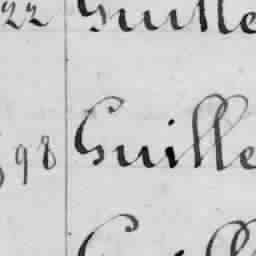 22 Guille
98 Guille